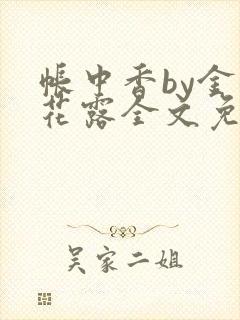 帐中香by金
花露全文免
吴家二姐